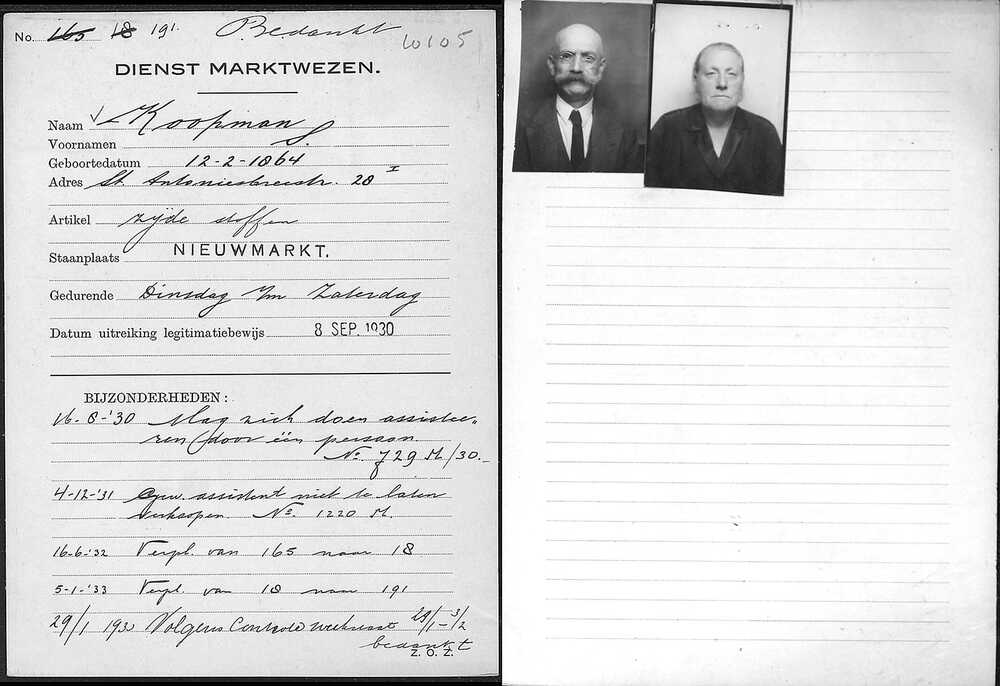 No. 165 18 191. Bedankt
10105
DIENST MARKTWEZEN.
Naam Koopman
Voornamen S.
Geboortedatum 12-2-1864
Adres St. Antoniesbreestr. 28 I
Artikel zijde stoffen
Staanplaats NIEUWMARKT.
Gedurende Dinsdag t/m Zaterdag
Datum uitreiking legitimatiebewijs 8 SEP. 1930
BIJZONDERHEDEN:
16-8-'30 Mag zich doen assistee-
ren door één persoon
No. 729 M/30.-
4-12-'31 Gew. assistent niet te laten
verkoopen. No. 1220 M.
16-6-'32 Verpl. van 165 naar 18
5-1-'33 Verpl. van 18 naar 191
29/1 193 Volgens Controle 29/1 - 3/2
bedankt
Z. O. Z.